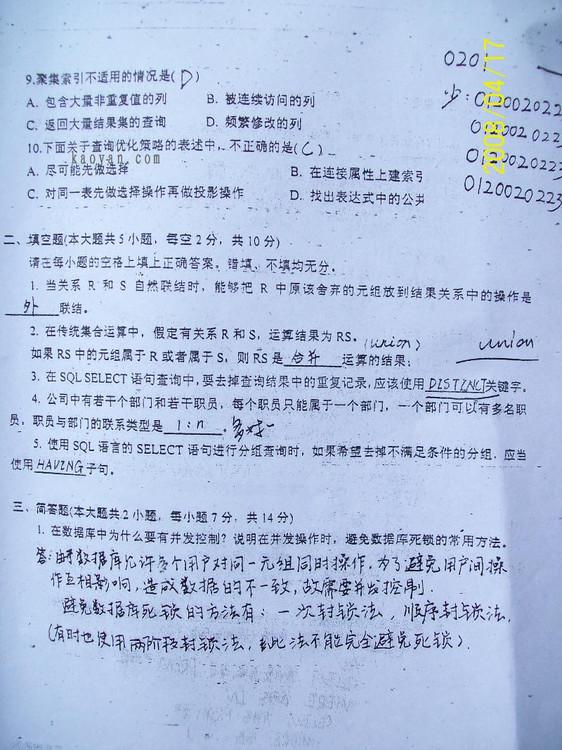 9.聚集索引不适用的情况是( D )
A. 包含大量非重复值的列 B. 被连续访问的列
C. 返回大量结果集的查询 D. 频繁修改的列
10.下面关于查询优化策略的表述中, 不正确的是( C )
kaoyan.com
A. 尽可能先做选择 B. 在连接属性上建索引
C. 对同一表先做选择操作再做投影操作 D. 找出表达式中的公共
0201
少: 0120020222
0120020223
0120020223
0120020223
2008/04/17
二、填空题(本大题共5小题, 每空2分, 共10分)
请在每小题的空格上填上正确答案。错填、不填均无分。
1. 当关系 R 和 S 自然联结时, 能够把 R 中原该舍弃的元组放到结果关系中的操作是
外 联结。
2. 在传统集合运算中, 假定有关系 R 和 S, 运算结果为 RS。 (union) union
如果 RS 中的元组属于 R 或者属于 S, 则 RS 是 合并 运算的结果;
3. 在 SQL SELECT 语句查询中, 要去掉查询结果中的重复记录, 应该使用 DISTINCT 关键字。
4. 公司中有若干个部门和若干职员, 每个职员只能属于一个部门, 一个部门可以有多名职
员, 职员与部门的联系类型是 1:n 。多对一
5. 使用 SQL 语言的 SELECT 语句进行分组查询时, 如果希望去掉不满足条件的分组, 应当
使用 HAVING 子句。
三、简答题(本大题共2小题, 每小题7分, 共14分)
1. 在数据库中为什么要有并发控制? 说明在并发操作时, 避免数据库死锁的常用方法。
答: 由于数据库允许多个用户对同一元组同时操作, 为了避免用户间操
作互相影响, 造成数据的不一致, 故需要并发控制.
避免数据库死锁的方法有: 一次封锁法, 顺序封锁法,
(有时也使用两阶段封锁法, 但此法不能完全避免死锁).